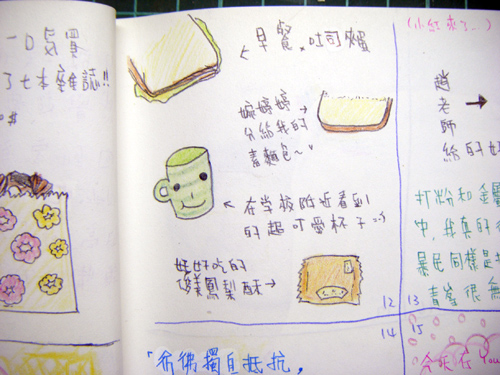 一口氣買
了七本雜誌!!
早餐.吐司夾蛋
婷婷
分給我的
素麵包～
在學校附近看到
的超可愛杯子
好好吃的
鳳梨酥
12
13
14
15
「彷彿獨自抵抗，
(小紅來了...)
趙
老
師
給的好
打粉和金屬
中,我真的
暴民同樣是
青峯很
今晚在You